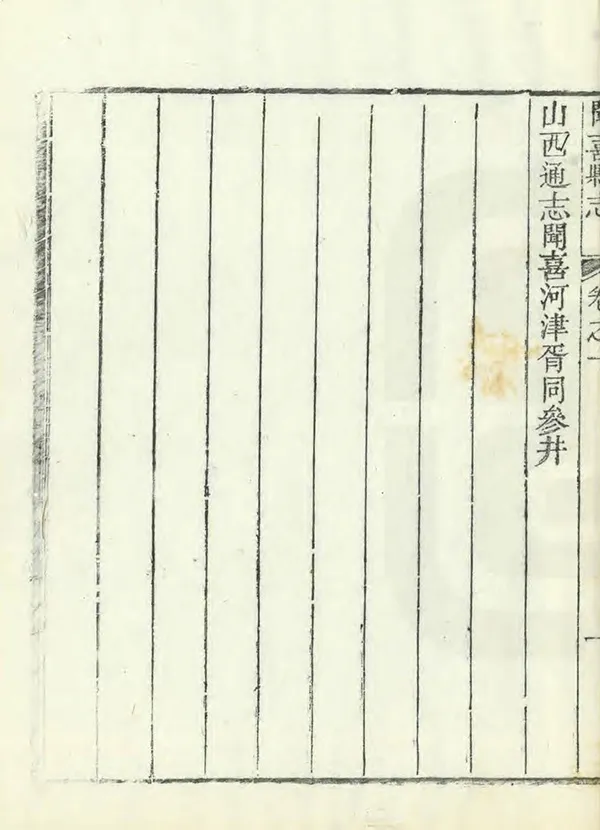 聞喜縣志 卷之一 一
山西通志聞喜河津胥同參井